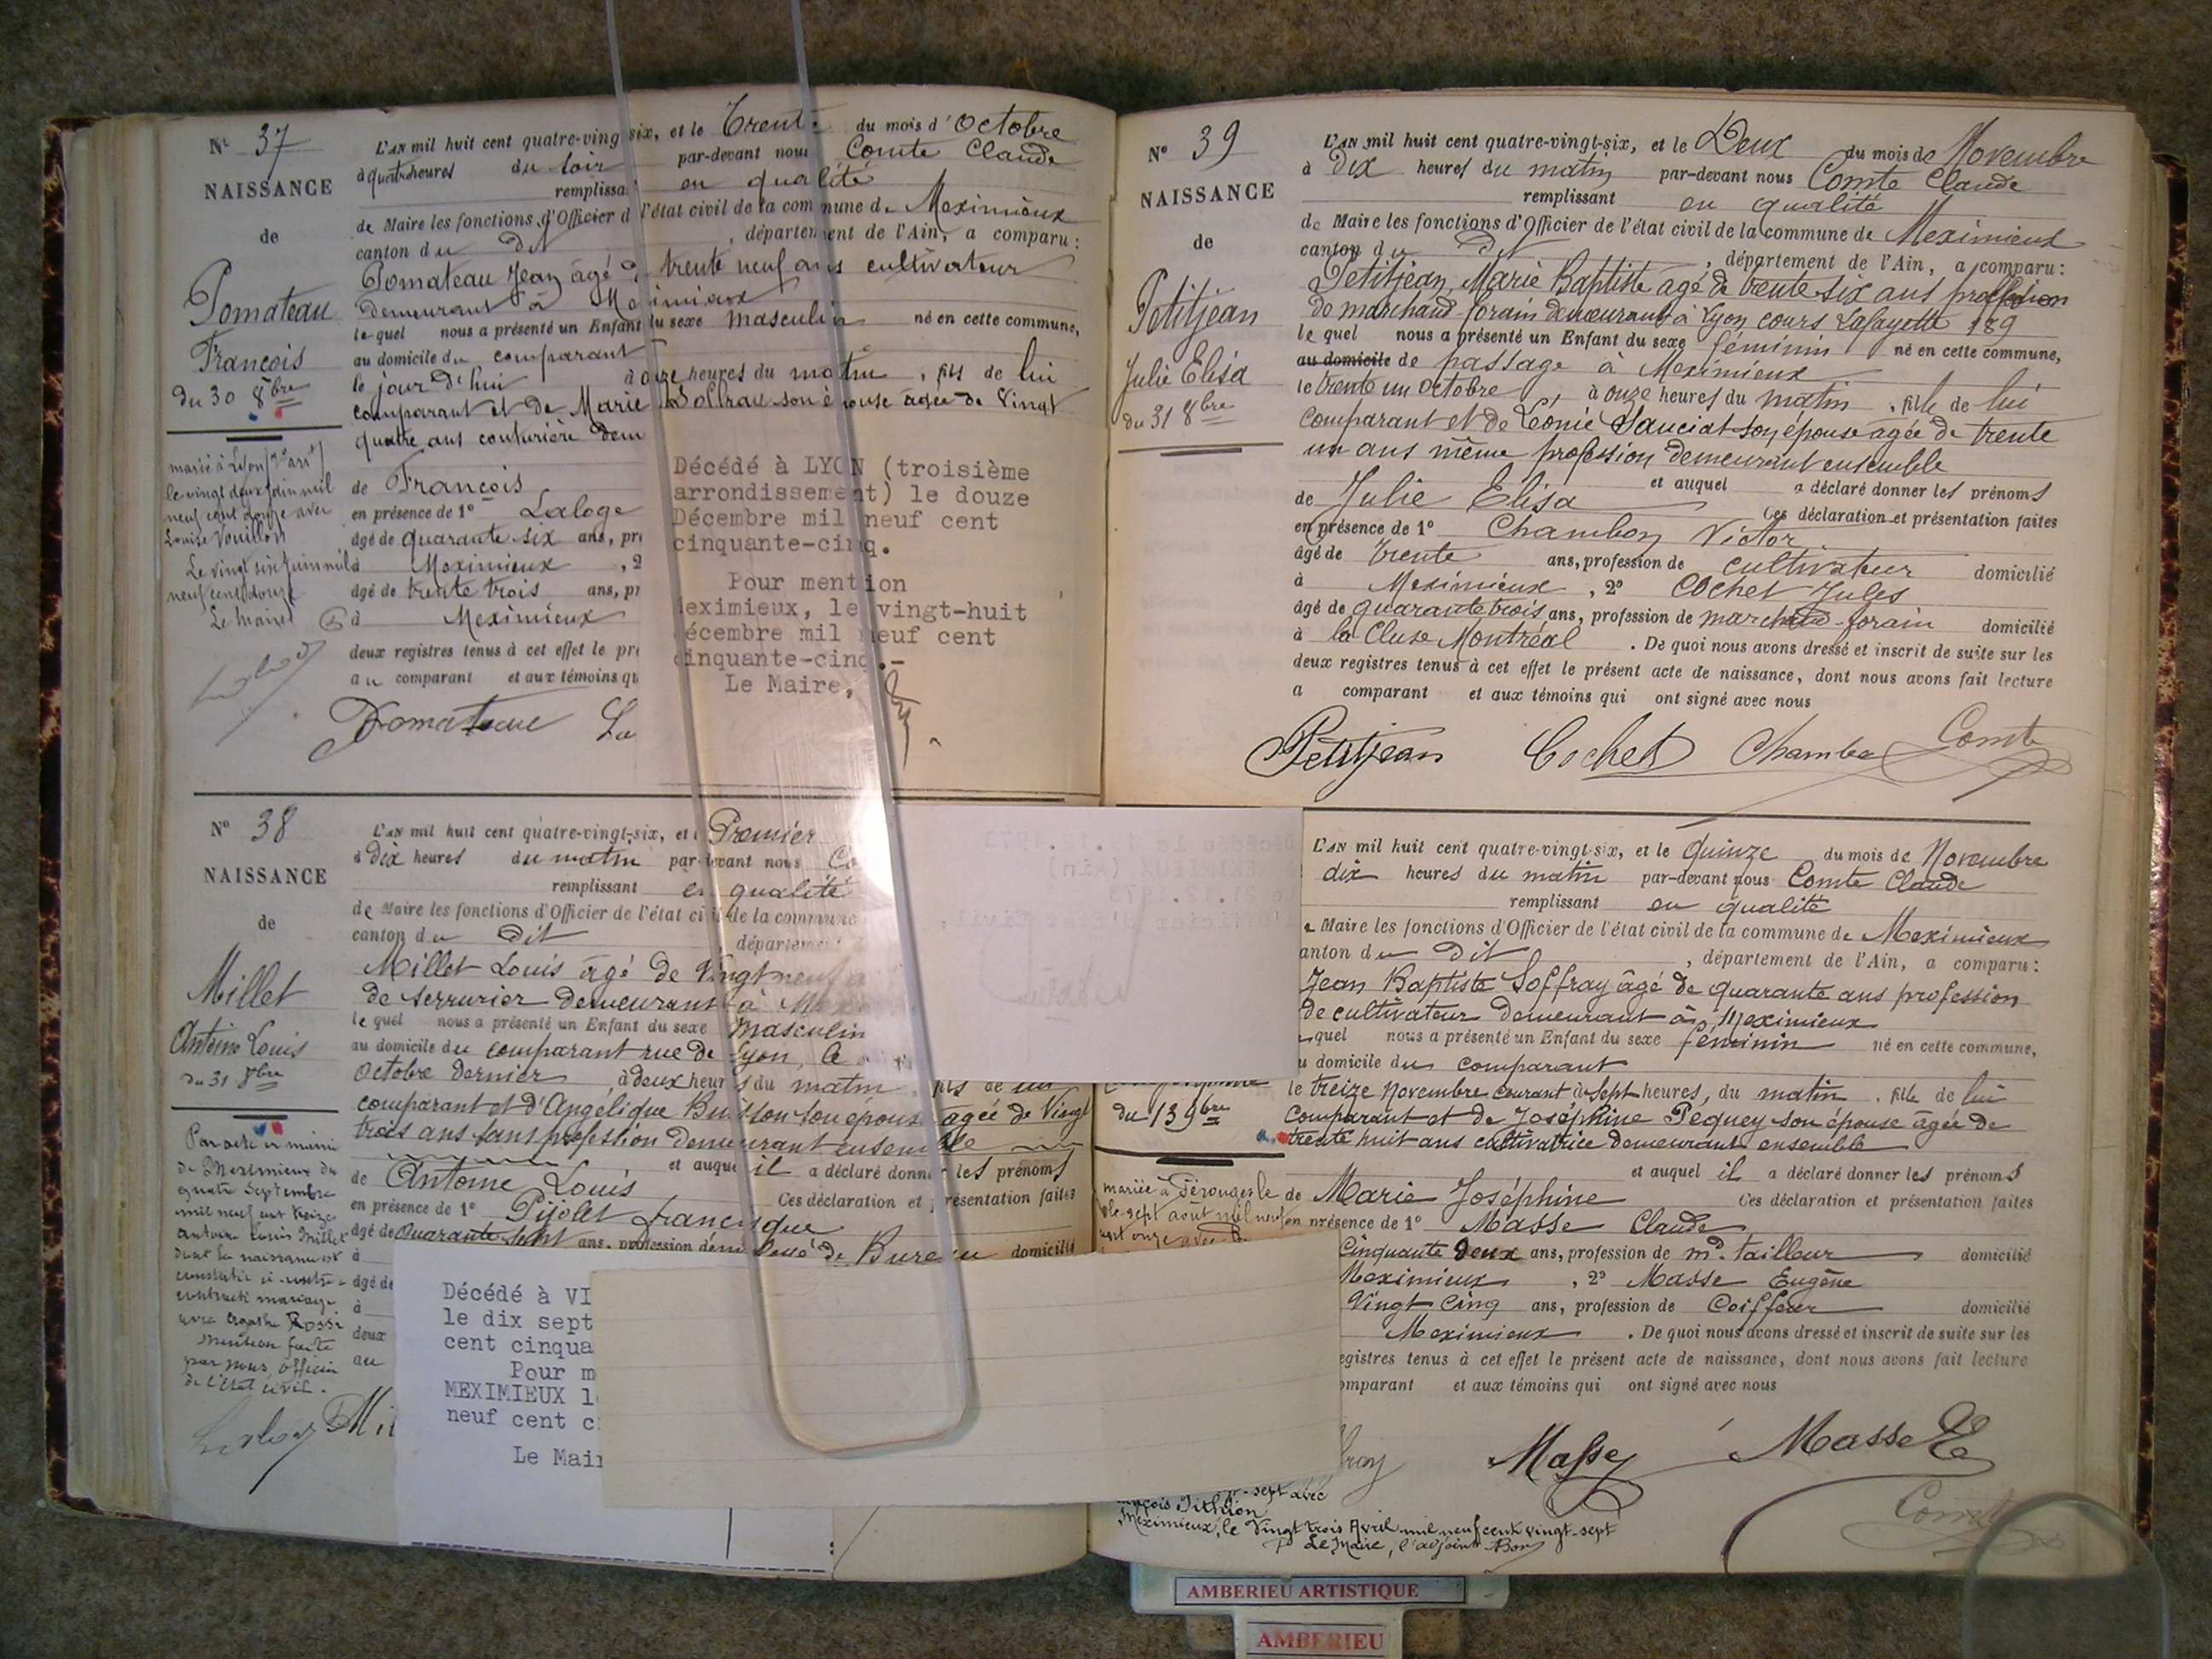 N° 37
NAISSANCE
de
Pomateau
François
du 30 8bre
L'AN mil huit cent quatre-vingt-six, et le Trente du mois d'Octobre
à quatre heures du soir par-devant nous Comte Claude
remplissant en qualité
de Maire les fonctions d'Officier de l'état civil de la commune de Meximieux
canton du Dit, département de l'Ain, a comparu:
Pomateau Jean âgé de trente neuf ans cultivateur
demeurant à Meximieux
lequel nous a présenté un Enfant du sexe masculin né en cette commune,
au domicile du comparant
le jour d'hui à onze heures du matin, fils de lui
comparant et de Marie son épouse âgée de Vingt
quatre ans couturière dem
de François
en présence de 1° Laloge
âgé de quarante six ans, pr
à Meximieux, 2
âgé de trente trois ans, pr
à Meximieux
deux registres tenus à cet effet le pré
au comparant et aux témoins qu
Pomateau La
marié à Lyon
le vingt deux juin mil
neuf cent douze avec
Louise Vouillon
Le vingt six juin mil
neuf cent douze
Le Maire
Décédé à LYON (troisième
arrondissement) le douze
Décembre mil neuf cent
cinquante-cinq.
Pour mention
Meximieux, le vingt-huit
décembre mil neuf cent
cinquante-cinq.-
Le Maire,
N° 38
NAISSANCE
de
Millet
Antoine Louis
du 31 8bre
L'AN mil huit cent quatre-vingt-six, et le Premier
à dix heures du matin par-devant nous Co
remplissant en qualité
de Maire les fonctions d'Officier de l'état civil de la commune
canton du Dit, départeme
Millet Louis âgé de Vingt neuf a
de serrurier demeurant à Mex
lequel nous a présenté un Enfant du sexe masculin
au domicile du comparant rue de Lyon, le
Octobre dernier, à deux heures du matin, fils de lui
comparant et d'Angélique Buisson son épouse âgée de Vingt
trois ans sans profession demeurant ensemble
et auquel il a déclaré donner les prénoms
de Antoine Louis Ces déclaration et présentation faites
en présence de 1° Pijolet francisque
âgé de Quarante sept ans, profession d'employé de Bureau domicilié
à
âgé de
à
deux
au
Mil
Par acte en mairie
de Meximieux du
quatre Septembre
mil neuf cent treize
Antoine Louis Millet
dont la naissance est
constatée ci-contre a
contracté mariage
avec Agathe Rossi
Mention faite
par nous, officier
de l'état civil.
Décédé à VI
le dix sept
cent cinqua
Pour m
MEXIMIEUX l
neuf cent c
Le Mair
N° 39
NAISSANCE
de
Petitjean
Julie Elisa
du 31 8bre
L'AN mil huit cent quatre-vingt-six, et le Deux du mois de Novembre
à Dix heures du matin par-devant nous Comte Claude
remplissant en qualité
de Maire les fonctions d'Officier de l'état civil de la commune de Meximieux
canton du Dit, département de l'Ain, a comparu:
Petitjean, Marie Baptiste âgé de trente-six ans profession
de marchand forain demeurant à Lyon cours Lafayette 189
lequel nous a présenté un Enfant du sexe féminin né en cette commune,
au domicile de passage à Meximieux
le trente un octobre, à onze heures du matin, fille de lui
comparant et de Léonie Sauciat son épouse âgée de trente
un ans même profession demeurant ensemble
et auquel a déclaré donner les prénoms
de Julie Elisa Ces déclaration et présentation faites
en présence de 1° Chambon Victor
âgé de trente ans, profession de cultivateur domicilié
à Meximieux, 2° Cochet Jules
âgé de quarante trois ans, profession de marchand-forain domicilié
à la Cluse Montréal. De quoi nous avons dressé et inscrit de suite sur les
deux registres tenus à cet effet le présent acte de naissance, dont nous avons fait lecture
a comparant et aux témoins qui ont signé avec nous
Petitjean Cochet Chambon Comte
L'AN mil huit cent quatre-vingt-six, et le Quinze du mois de Novembre
dix heures du matin par-devant nous Comte Claude
remplissant en qualité
e Maire les fonctions d'Officier de l'état civil de la commune de Meximieux
anton du Dit, département de l'Ain, a comparu:
Jean Baptiste Soffray âgé de quarante ans profession
de cultivateur demeurant à Meximieux
equel nous a présenté un Enfant du sexe féminin né en cette commune,
u domicile du comparant
le treize Novembre courant à Sept heures, du matin, fille de lui
comparant et de Joséphine Pequey son épouse âgée de
trente huit ans cultivatrice demeurant ensemble
du 13 9bre
et auquel il a déclaré donner les prénoms
de Marie Joséphine Ces déclaration et présentation faites
en présence de 1° Masse Claude
Cinquante deux ans, profession de md. tailleur domicilié
Meximieux, 2° Masse Eugène
Vingt Cinq ans, profession de Coiffeur domicilié
Meximieux. De quoi nous avons dressé et inscrit de suite sur les
egistres tenus à cet effet le présent acte de naissance, dont nous avons fait lecture
omparant et aux témoins qui ont signé avec nous
fray Masse Masse E
Comte
mariée à Pérouges le
sept août mil neuf
cent onze avec
sept avec
Meximieux, le Vingt trois Avril mil neuf cent vingt-sept
Le Maire, l'adjoint
AMBERIEU ARTISTIQUE
AMBERIEU